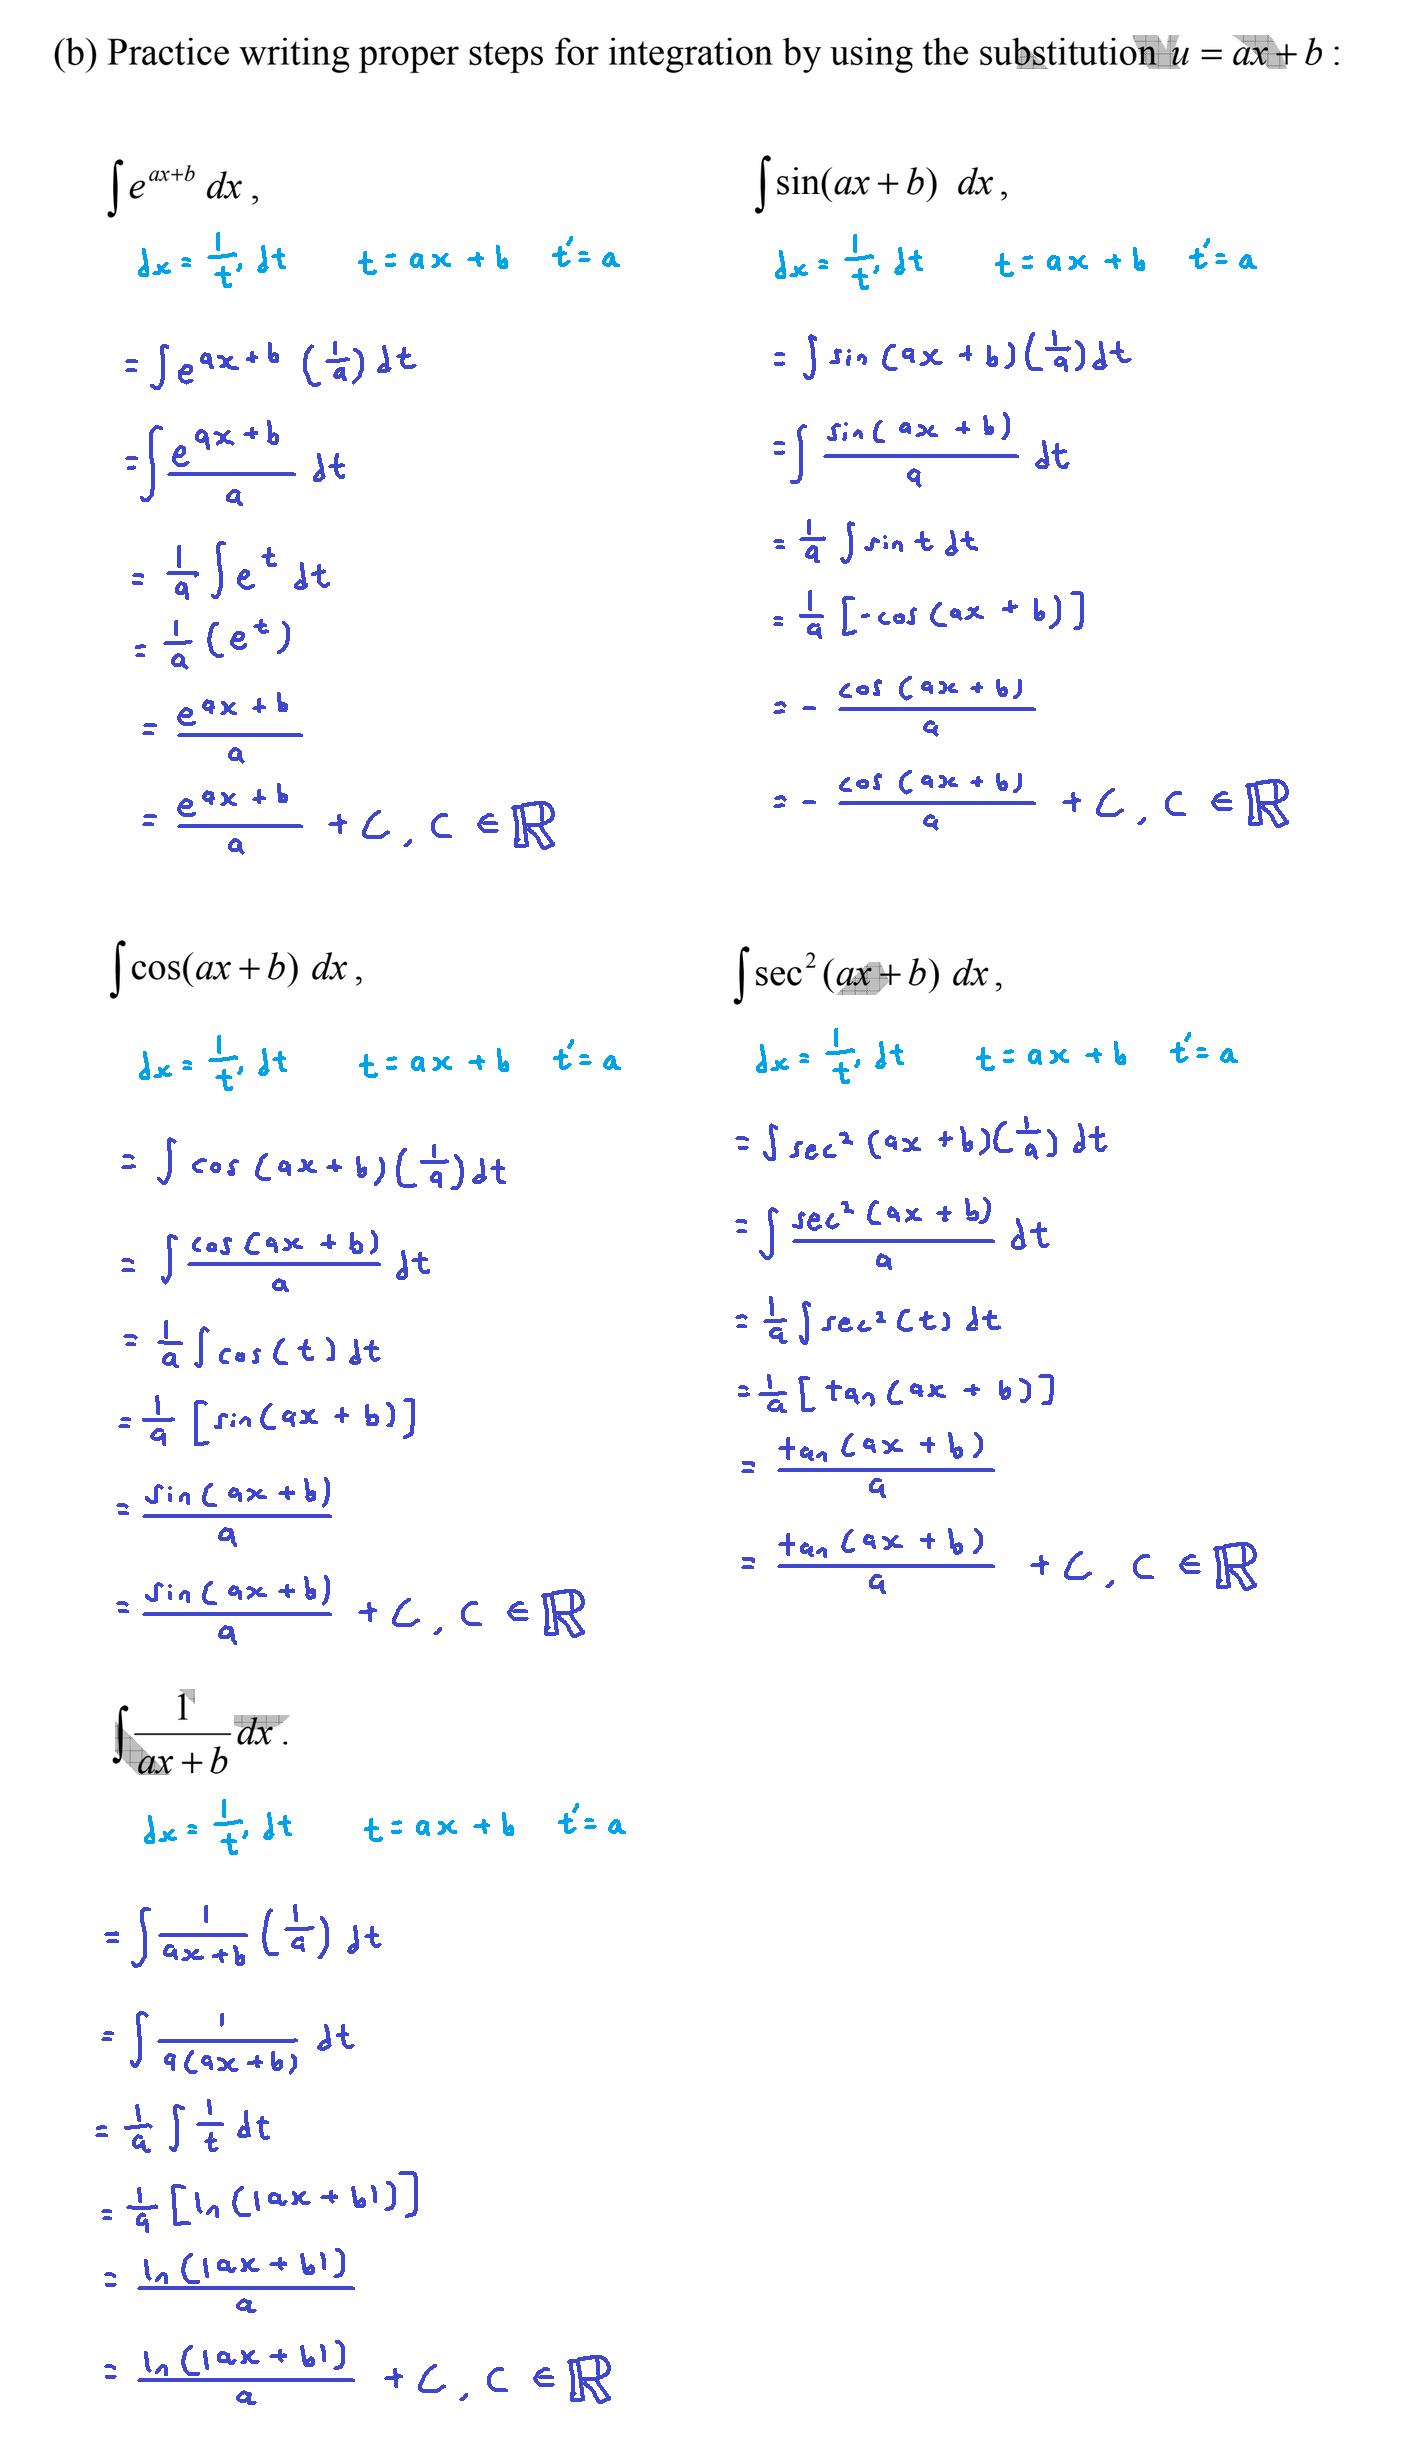 (b) Practice writing proper steps for integration by using the substitution u = ax + b :
∫ e^{ax+b} dx ,
dx = 1/t' dt   t = ax + b   t' = a
= ∫ e^{ax+b} (1/a) dt
= ∫ e^{ax+b}/a dt
= 1/a ∫ e^t dt
= 1/a (e^t)
= e^{ax+b}/a
= e^{ax+b}/a + C, C ∈ ℝ
∫ sin(ax + b) dx ,
dx = 1/t' dt   t = ax + b   t' = a
= ∫ sin (ax + b)(1/a) dt
= ∫ sin(ax + b)/a dt
= 1/a ∫ sin t dt
= 1/a [-cos (ax + b)]
= - cos (ax + b)/a
= - cos (ax + b)/a + C, C ∈ ℝ
∫ cos(ax + b) dx ,
dx = 1/t' dt   t = ax + b   t' = a
= ∫ cos (ax + b)(1/a) dt
= ∫ cos (ax + b)/a dt
= 1/a ∫ cos(t) dt
= 1/a [sin(ax + b)]
= sin(ax + b)/a
= sin(ax + b)/a + C, C ∈ ℝ
∫ sec² (ax + b) dx ,
dx = 1/t' dt   t = ax + b   t' = a
= ∫ sec² (ax + b)(1/a) dt
= ∫ sec² (ax + b)/a dt
= 1/a ∫ sec² (t) dt
= 1/a [tan (ax + b)]
= tan (ax + b)/a
= tan (ax + b)/a + C, C ∈ ℝ
∫ 1/(ax + b) dx .
dx = 1/t' dt   t = ax + b   t' = a
= ∫ 1/(ax + b) (1/a) dt
= ∫ 1/(a(ax + b)) dt
= 1/a ∫ 1/t dt
= 1/a [ln (|ax + b|)]
= ln (|ax + b|)/a
= ln (|ax + b|)/a + C, C ∈ ℝ